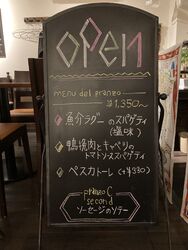 OPEN
menu del pranzo
¥1,350〜
魚介ラグーのスパゲティ
(塩味)
鴨挽肉とキャベツの
トマトソーススパゲティ
ペスカトーレ (+¥330)
pranzo C
second
ソーセージのソテー